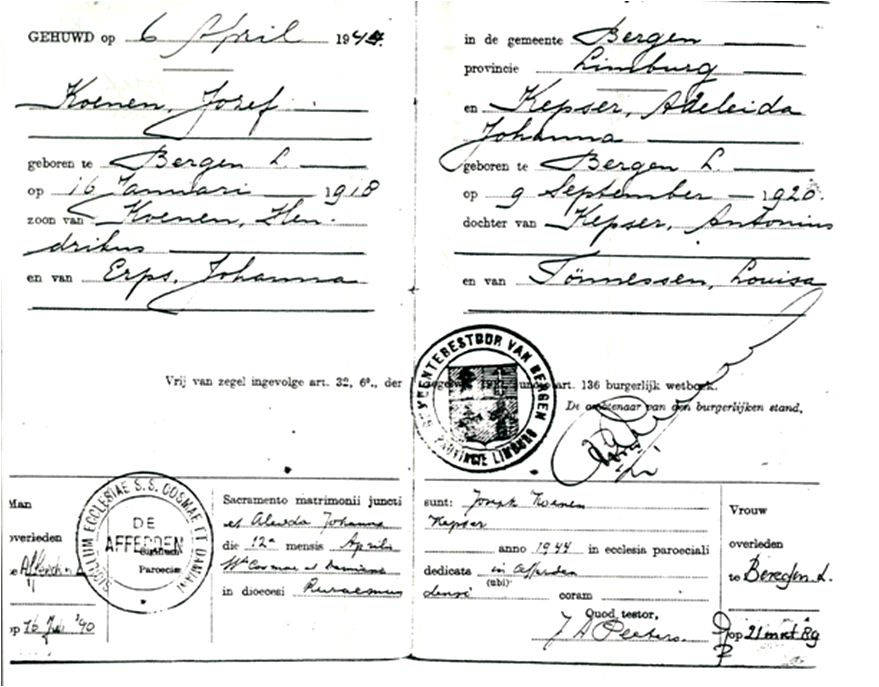 GEHUWD op 6 April 1944.
Koenen, Jozef
geboren te Bergen L.
op 16 Januari 1918
zoon van Koenen, Hen-
drikus
en van Erps, Johanna
in de gemeente Bergen
provincie Limburg
en Kepser, Adeleida
Johanna
geboren te Bergen L.
op 9 September 1920.
dochter van Kepser, Antonius
en van Tönnessen, Louisa
Vrij van zegel ingevolge art. 32, 6°., der art. 136 burgerlijk wetboek.
De ambtenaar van den burgerlijken stand,
GEMEENTEBESTUUR VAN BERGEN
PROVINCIE LIMBURG
Man
overleden
te Afferden L.
op 16 '90
SIGILLUM ECCLESIAE S.S. COSMAE ET DAMIANI
DE
AFFERDEN
Parochiae
Sacramento matrimonii juncti
et Aleida Johanna
die 12a mensis Aprilis
Ss Cosmae et Damiani
in dioecesi Ruraemun
sunt: Joseph Koenen
Kepser
anno 1944 in ecclesia paroeciali
dedicata in Afferden
(ubi)
densi coram
Quod testor,
J Peeters.
Vrouw
overleden
te Bergen L.
op 21 mrt 89